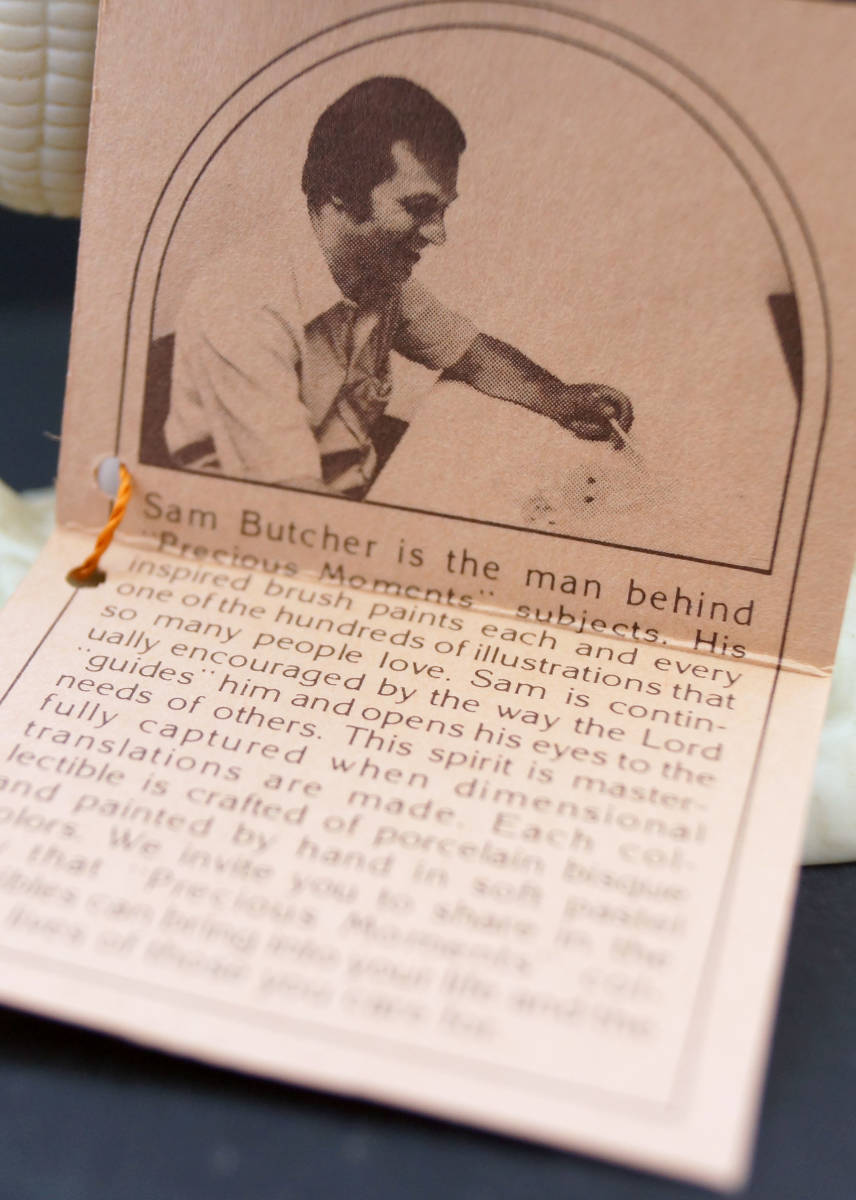 Sam Butcher is the man behind
"Precious Moments" subjects. His
inspired brush paints each and every
one of the hundreds of illustrations that
so many people love. Sam is contin-
ually encouraged by the way the Lord
"guides" him and opens his eyes to the
needs of others. This spirit is master-
fully captured when dimensional
translations are made. Each col-
lectible is crafted of porcelain bisque
and painted by hand in soft pastel
colors. We invite you to share in the
that "Precious Moments" col-
can bring into your life and the
lives of those you care for.